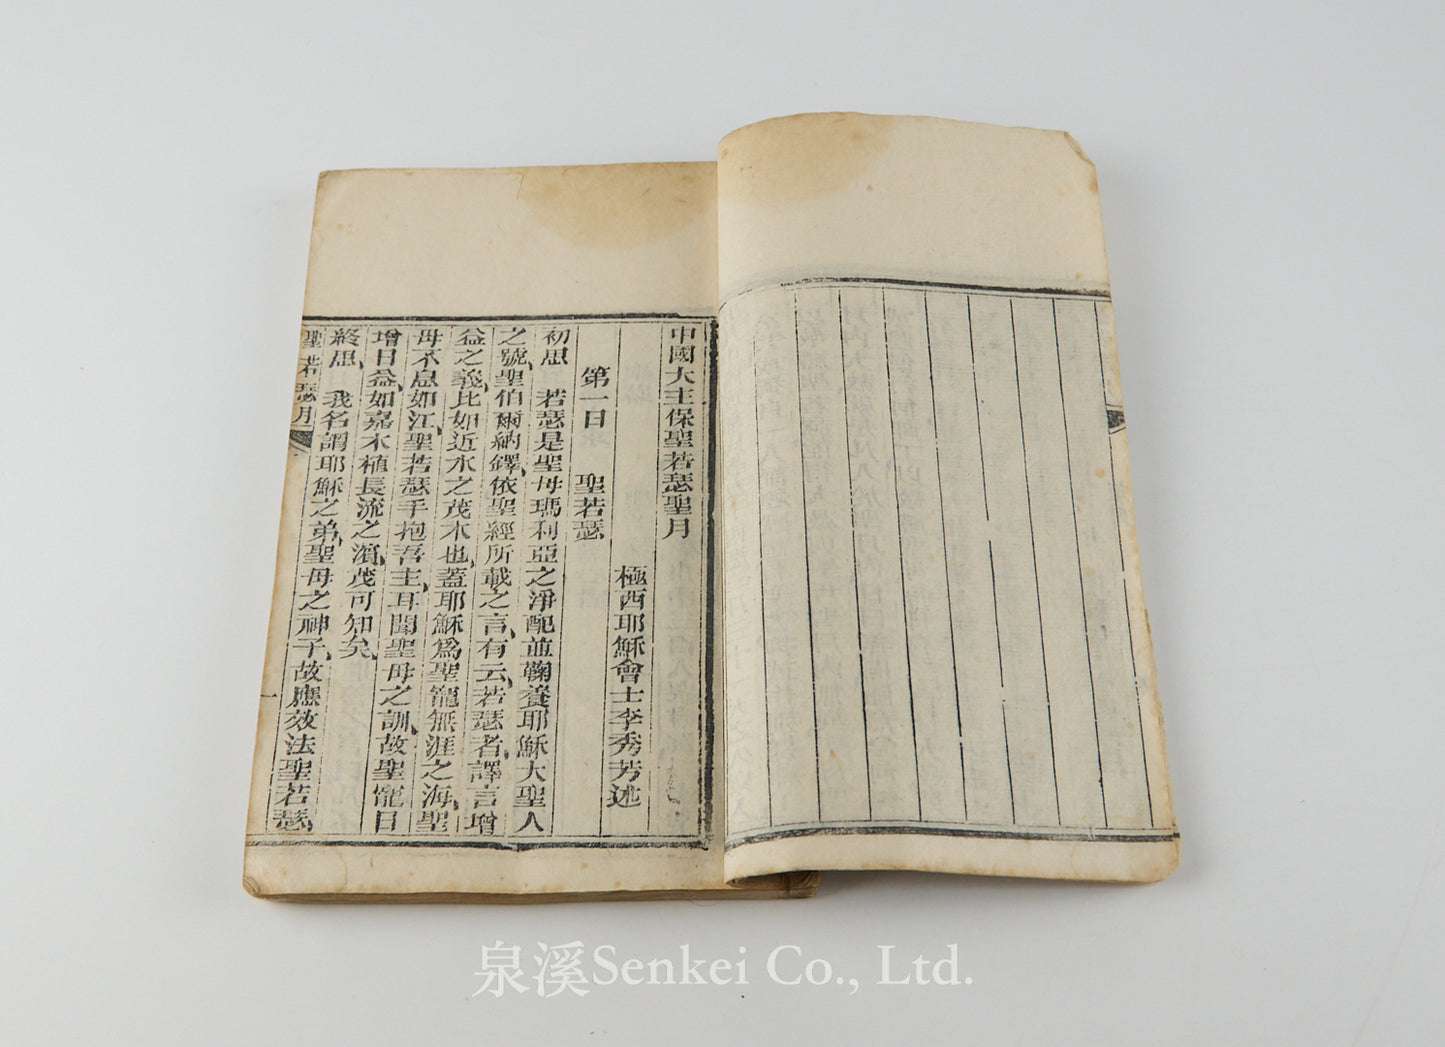 中國大主保聖若瑟聖月
極西耶穌會士李秀芳述
第一日 聖若瑟
初思 若瑟是聖母瑪利亞之淨配並鞠養耶穌大聖人
之號聖伯爾納鐸依聖經所載之言有云若瑟者譯言增
益之義比如近水之茂木也蓋耶穌為聖寵無涯之海聖
母不息如江聖若瑟手抱吾主耳聞聖母之訓故聖寵日
增日益如嘉木植長流之濱茂可知矣
終思 我名謂耶穌之弟聖母之神子故應效法聖若瑟
聖若瑟月
一
泉溪Senkei Co., Ltd.